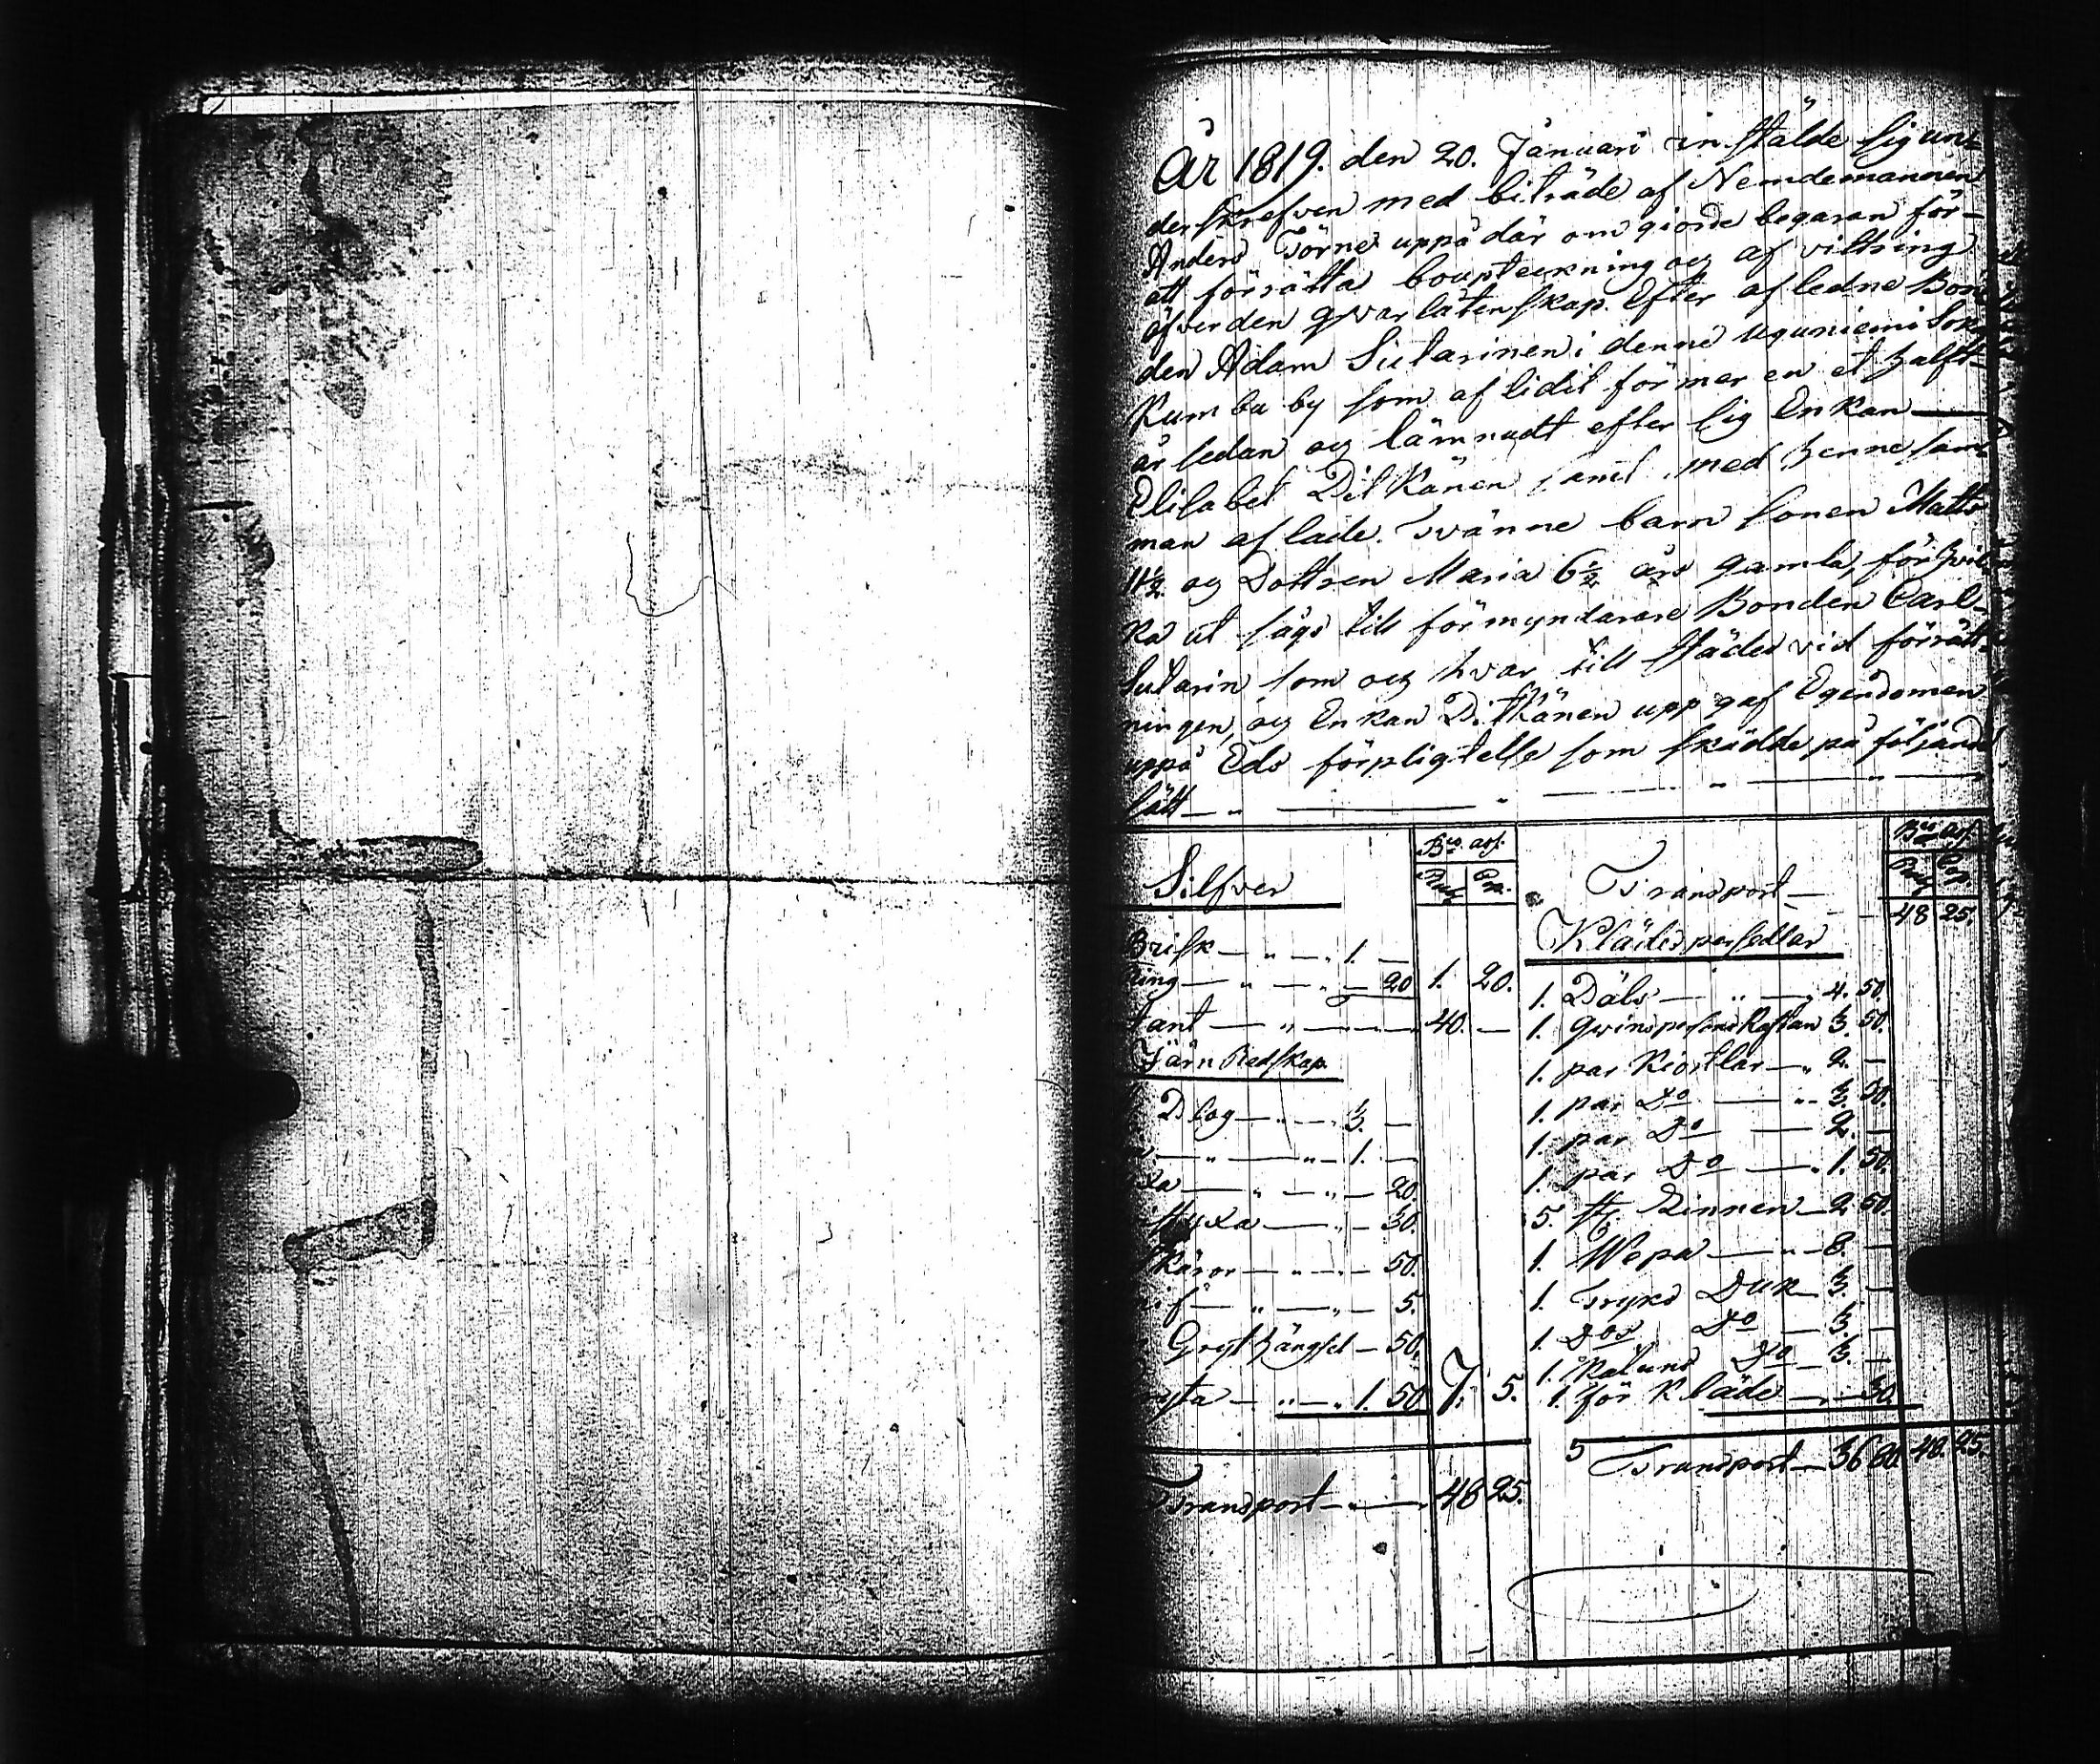 År 1819. den 20. Januari instälde sig un-
derskrefven med biträde af Nemdemannen
Anders Törne uppå där om giorde begäran för-
att förrätta bouptekning og af viltring
öfver den qvarlåtenskap. Efter afledne Bon-
den Adam Sutarinen i denne uguniemi Sokn
Kumbu by som aflidit för mer en et halft-
år sedan og lämnadt efter sig Enkan
Elisabet Ditkänen samt med henne sam-
man aflade. Tvänne barn sonen Matts
11½ og Dottren Maria 6½ års gamla, för hvil-
ka ut sågs till förmyndarare Bonden Carl-
Sutarin som og hvar till städes vid förrätt-
ningen, og Enkan Ditkänen uppgaf Egendomen
uppå Eds förpligtelse som skädde på följande
sätt — „ — „ — „ —
Silfver
Bco. asj.
Rub. Cop.
Brisk — „ — „ 1. —
Ring — „ — „ — 20 1. 20.
tant — „ — 40. —
Järn Redskap.
Plog — „ — 3. —
— „ — „ — 1. —
xa — „ — „ — 20.
styxa — „ — 30.
skäror — „ — „ — 50.
if — „ — „ — 5.
Grythängsel — 50.
yta — „ — „ 1. 50 7. 5.
Transport — „ — 48 25.
Transport —
Bco. asj.
Rub. Cop.
48 25.
Klädes persedlar
1. Päls — „ — 4. 50.
1. qvinspersons Kaftan 3. 50.
1. par Kiortlar — „ 2. —
1. par Do — „ 3. 50.
1. par Do — 2. —
1. par Do — „ 1. 50.
5. st. Linnen — 2 50.
1. Wepa — „ — 8. —
1. Tryks Duk — 3. —
1. Dos Do — 3. —
1. Katuns Do — 3. —
1. för Kläde — „ — 30.
Transport — 36 80. 48. 25.